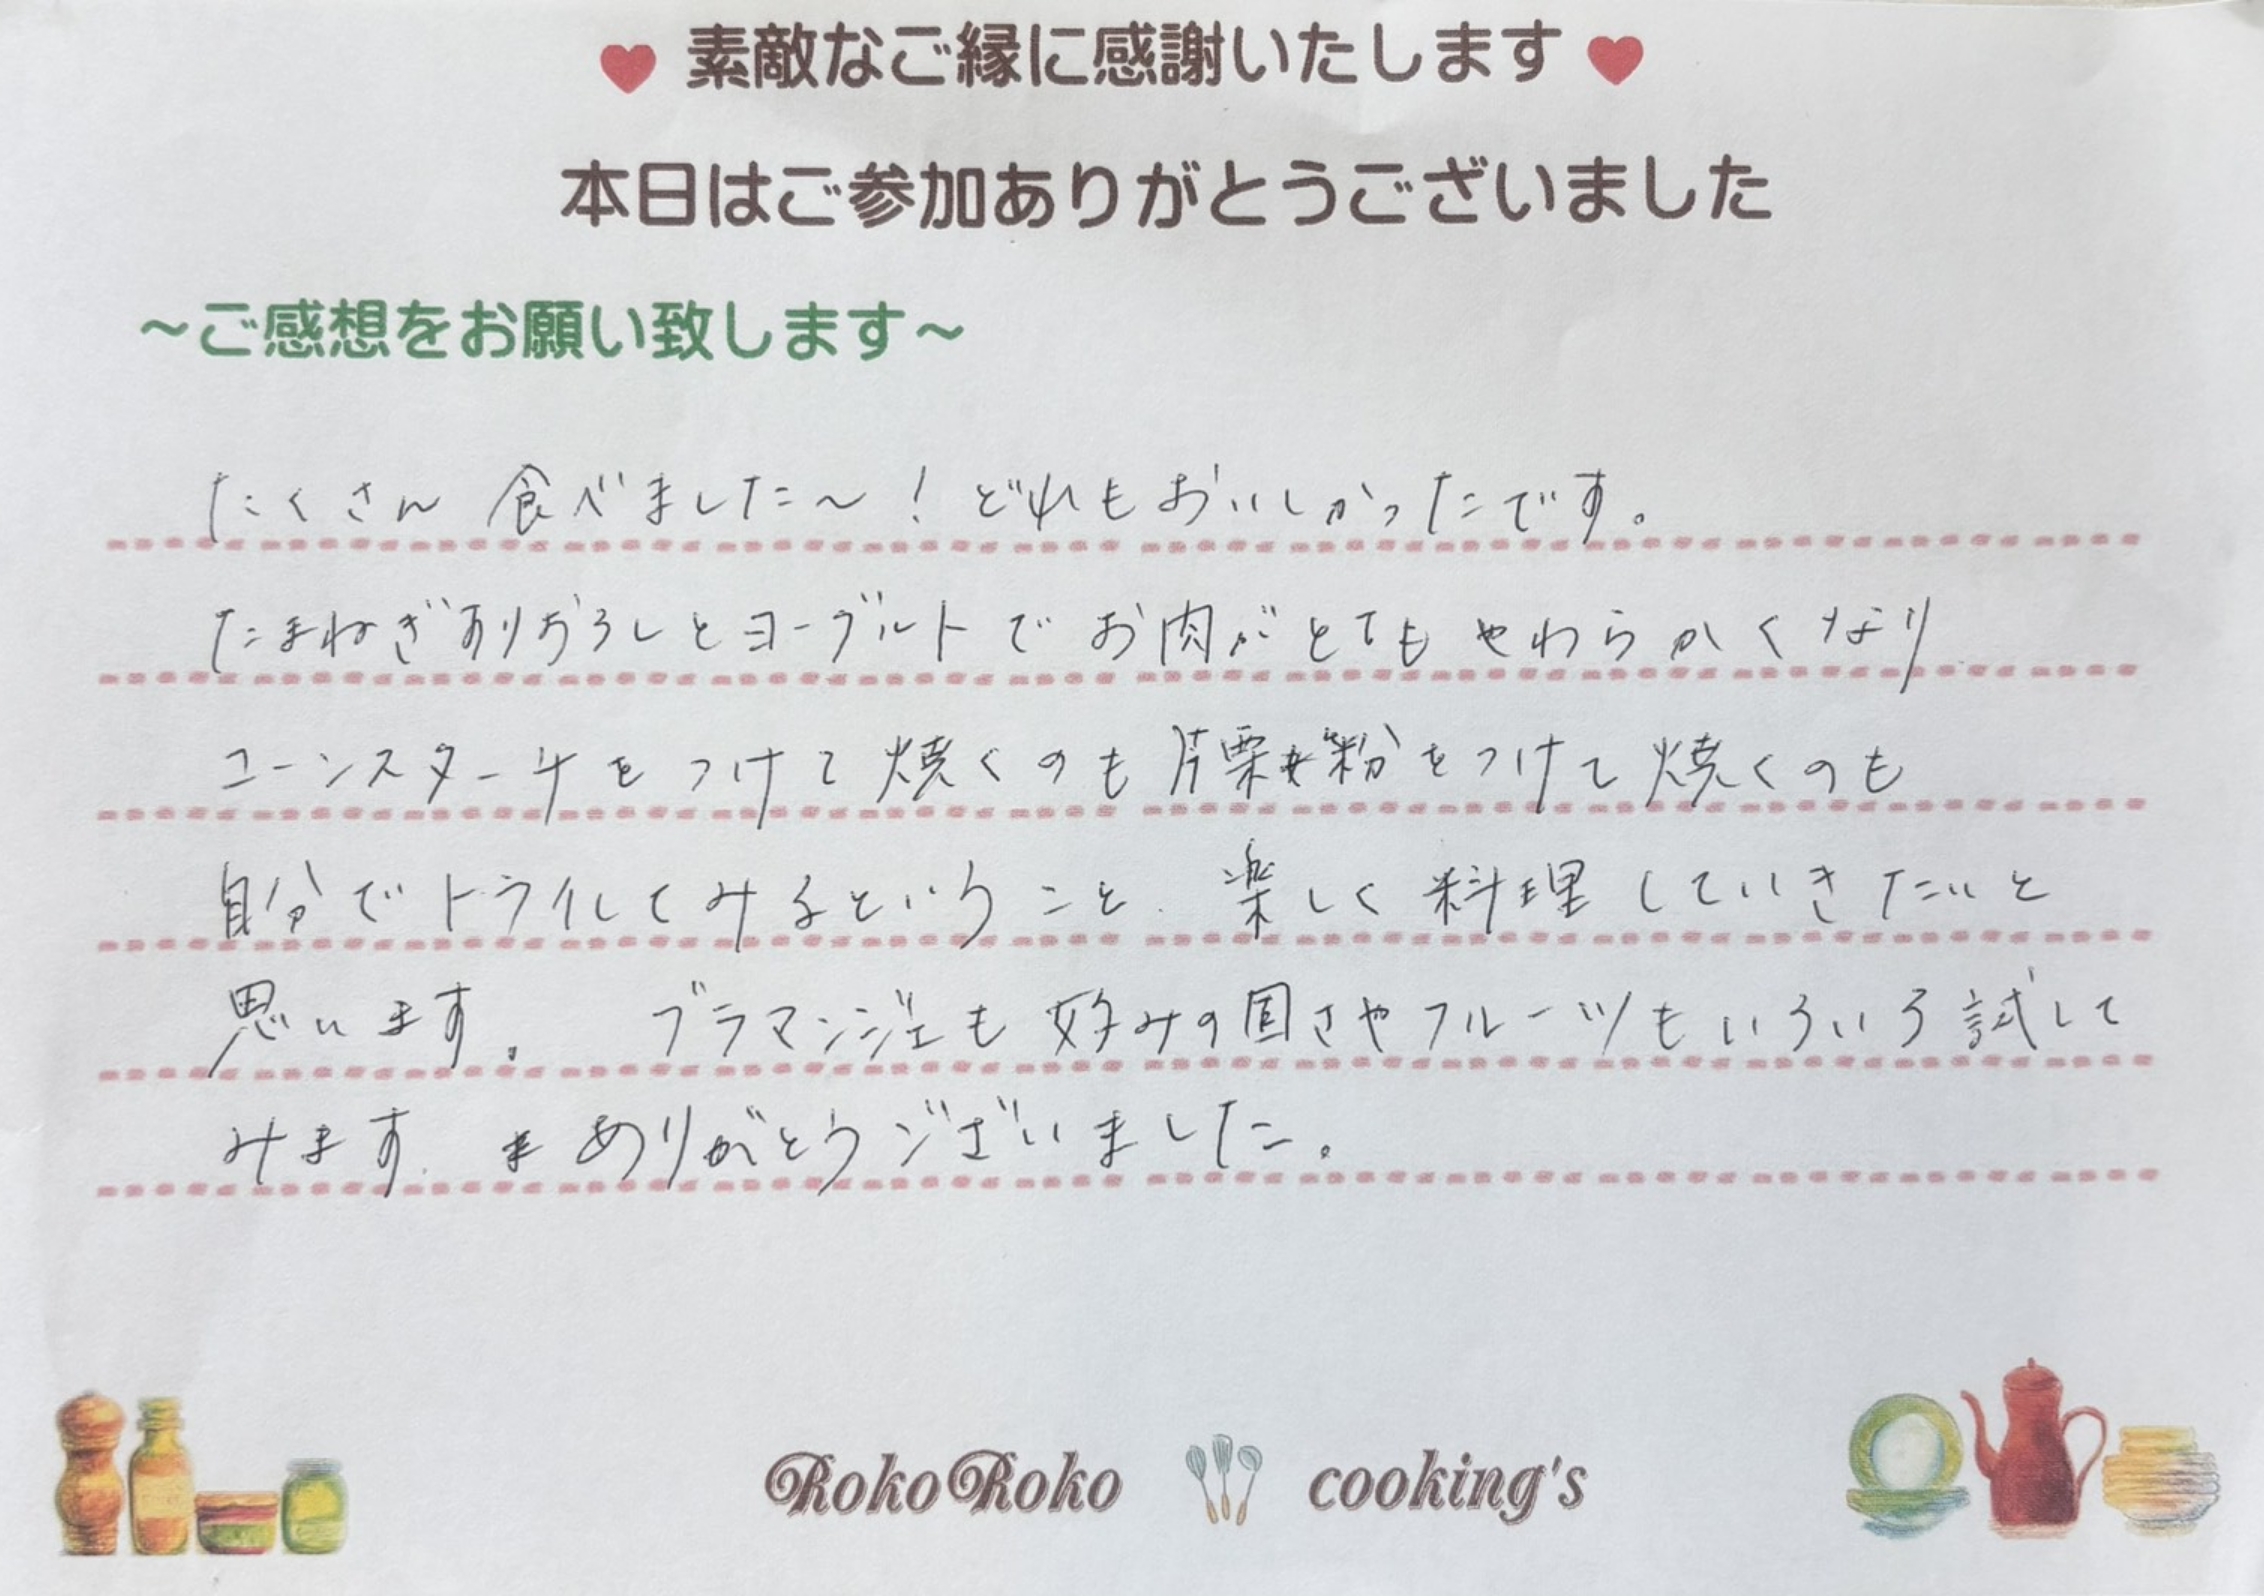 素敵なご縁に感謝いたします
本日はご参加ありがとうございました
~ご感想をお願い致します~
たくさん 食べました~!どれもおいしかったです。
たまねぎすりおろしとヨーグルトで お肉がとてもやわらかくなり
コーンスターチをつけて焼くのも片栗粉をつけて焼くのも
自分でトライしてみるということ 楽しく料理していきたいと
思います。 ブラマンジェも好みの固さやフルーツもいろいろ試して
みます ありがとうございました。
RokoRoko cooking's